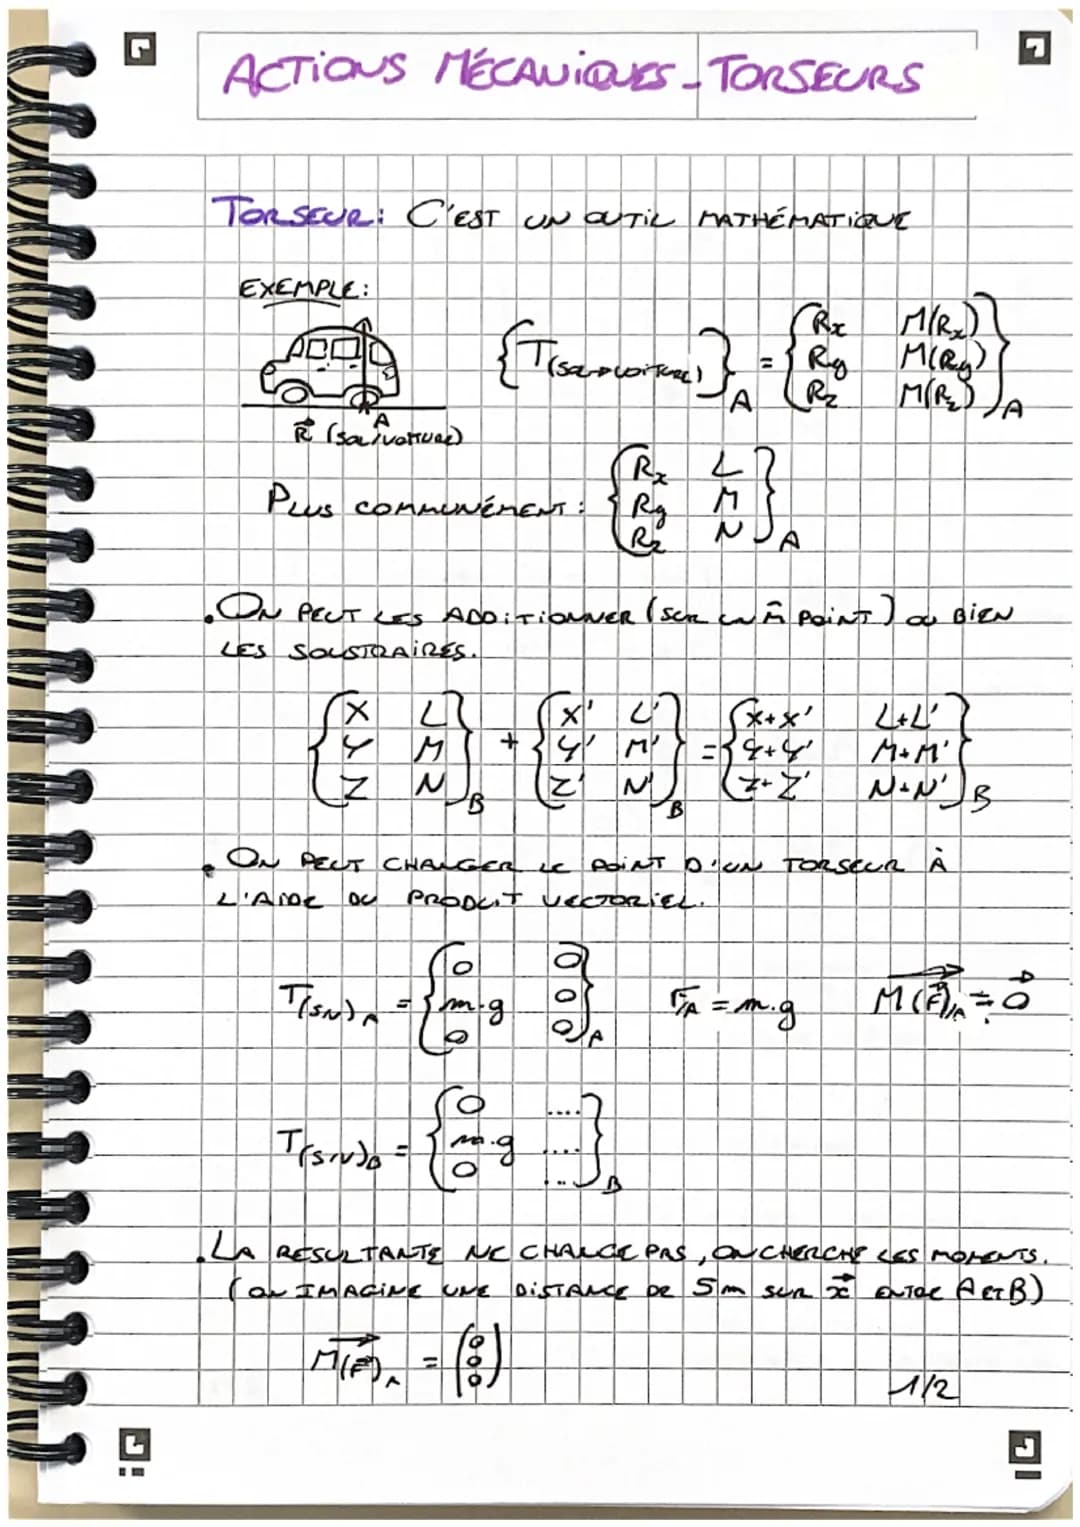 ACTIONS MÉCANIQUES - TORSEURS
TORSEUR: C'EST UN OUTIL MATHÉMATIQUE
EXEMPLE:
{T(SOL→VOITURE)}A = {Rx M(Rx) Ry M(Ry) Rz M(Rz)}A
A
R (SOL/VOITURE)
PLUS COMMUNÉMENT: {Rx L Ry M Rz N}A
. ON PEUT LES ADDITIONNER (SUR UN m̂ POINT) OU BIEN
LES SOUSTRAIRES.
{X L Y M Z N}B + {X' L' Y' M' Z' N'}B = {X+X' L+L' Y+Y' M+M' Z+Z' N+N'}B
. ON PEUT CHANGER LE POINT D'UN TORSEUR À
L'AIDE DU PRODUIT VECTORIEL.
T(S/V)A = {0 0 m.g 0 0 0}A F/A = m.g M(F)/A = 0
T(S/V)B = {0 .... m.g .... 0 ....}B
. LA RESULTANTE NE CHANGE PAS, ON CHERCHE LES MOMENTS.
(ON IMAGINE UNE DISTANCE DE 5m SUR x ENTRE A ET B)
M(F)A = (0 0 0)
1/2